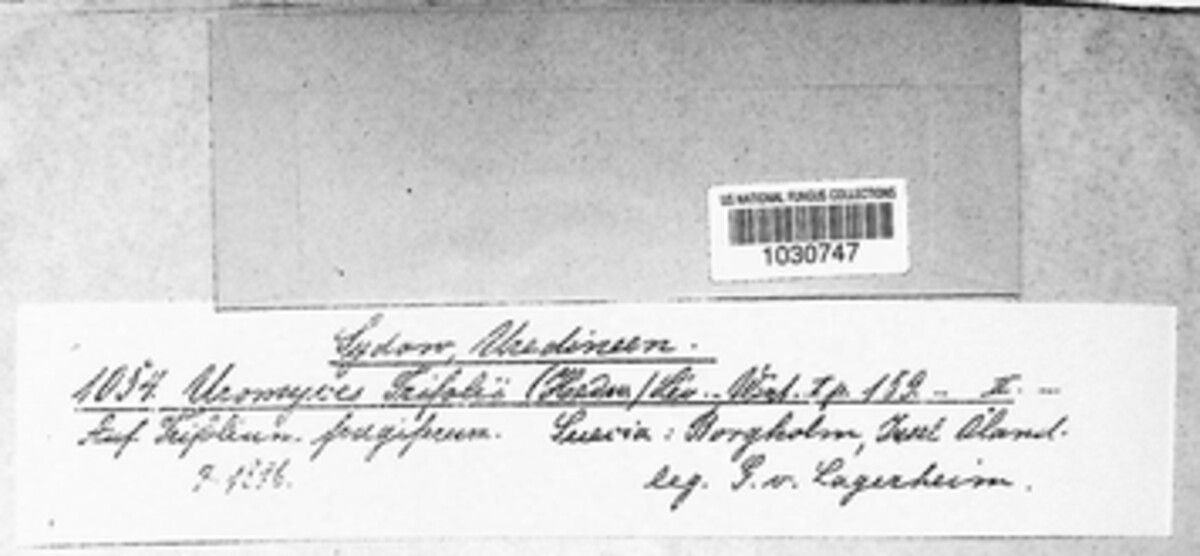 US NATIONAL FUNGUS COLLECTIONS
1030747
Sydow, Uredineen.
1054. Uromyces Trifolii (Hedw.) Lév. - Wint. I p. 159 - II. -
Auf Trifolium fragiferum. Suecia: Borgholm, Insel Öland.
1896.
leg. G. v. Lagerheim.